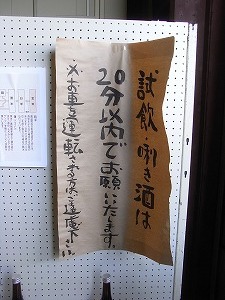 試飲・唎き酒は
20分以内でお願いいたします。
※お車を運転される方はご遠慮下さい。